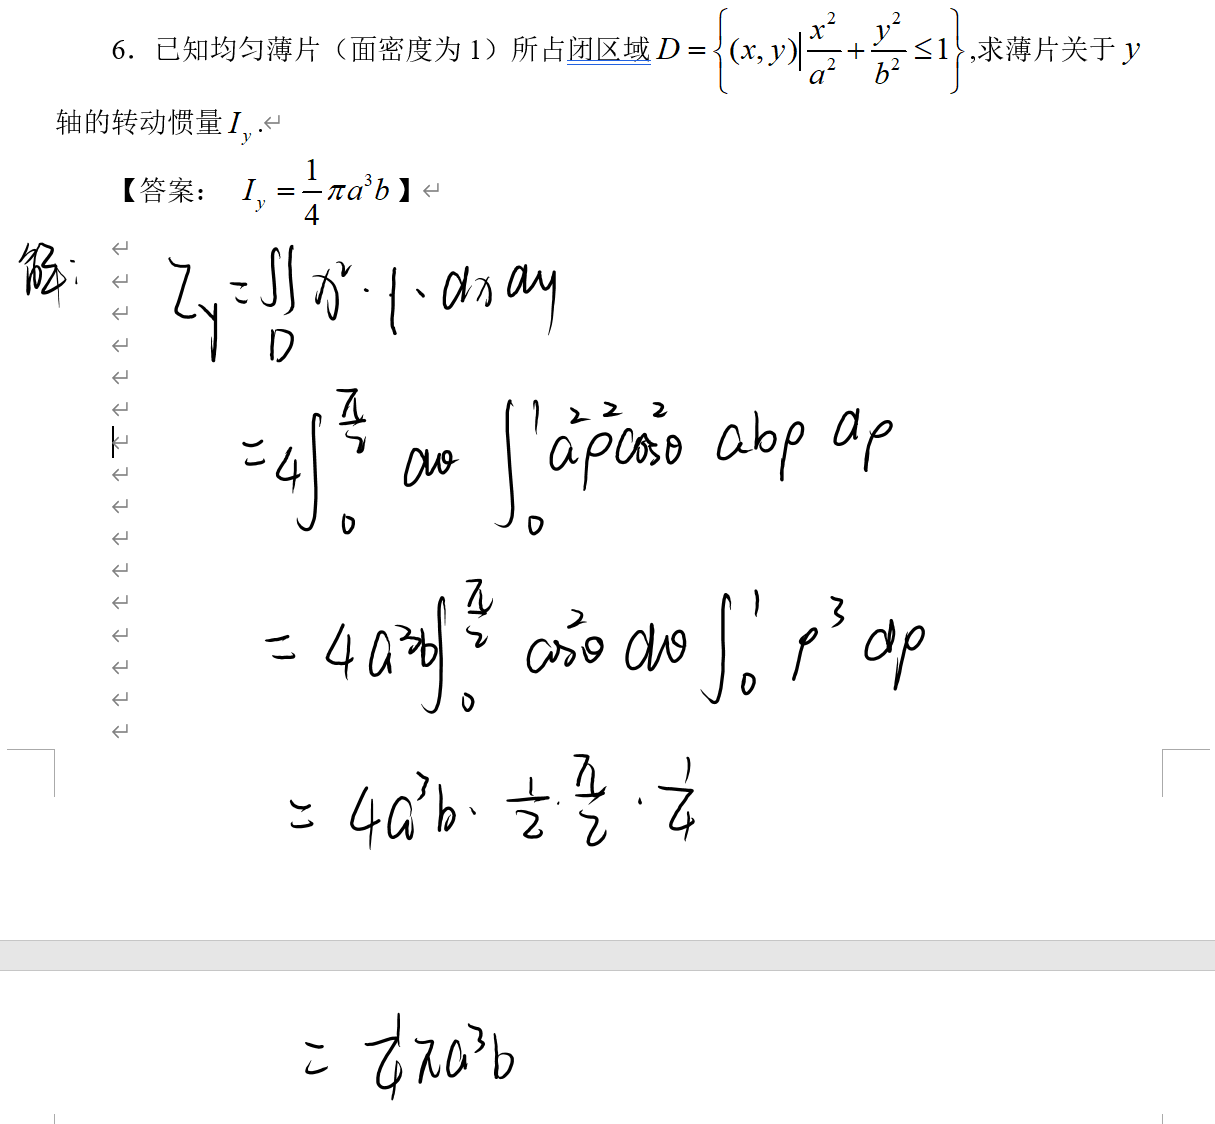 6. 已知均匀薄片（面密度为 1）所占闭区域 D = {(x, y)| x²/a² + y²/b² ≤ 1},求薄片关于 y
轴的转动惯量 I_y.
【答案： I_y = 1/4 πa³b 】
解: I_y = ∬_D x² · 1 · dx dy
= 4∫_0^{π/2} dθ ∫_0^1 a²ρ²cos²θ abρ dρ
= 4a³b ∫_0^{π/2} cos²θ dθ ∫_0^1 ρ³ dρ
= 4a³b · 1/2 · π/2 · 1/4
= 1/4 πa³b